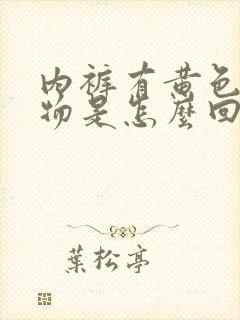 内裤有黄色
物是怎麼回
葉松亭